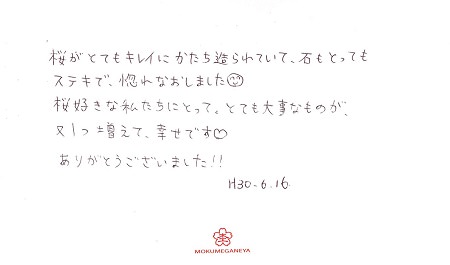 桜がとてもキレイにかたち造られていて、石もとっても
ステキで、惚れなおしました☺
桜好きな私たちにとって。とても大事なものが、
又1つ増えて、幸せです♡
ありがとうございました!!
H30.6.16.
MOKUMEGANEYA